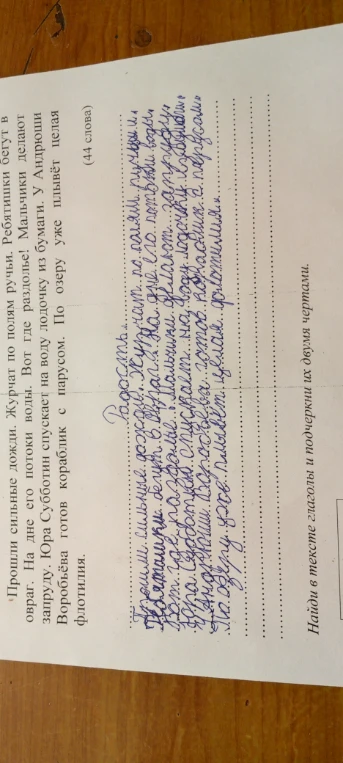 Прошли сильные дожди. Журчат по полям ручьи. Ребятишки бегут в
овраг. На дне его потоки воды. Вот где раздолье! Мальчики делают
запруду. Юра Субботин спускает на воду лодочку из бумаги. У Андрюши
Воробьёва готов кораблик с парусом. По озеру уже плывёт целая
флотилия.
(44 слова)
Радость.
Прошли сильные дожди. Журчат по полям ручьи.
Ребятишки бегут в овраг. На дне его потоки воды.
Вот где раздолье! Мальчики делают запруду.
Юра Субботин спускает на воду лодочку
У Андрюши готов кораблик с парусом.
По озеру уже плывет целая флотилия.
Найди в тексте глаголы и подчеркни их двумя чертами.